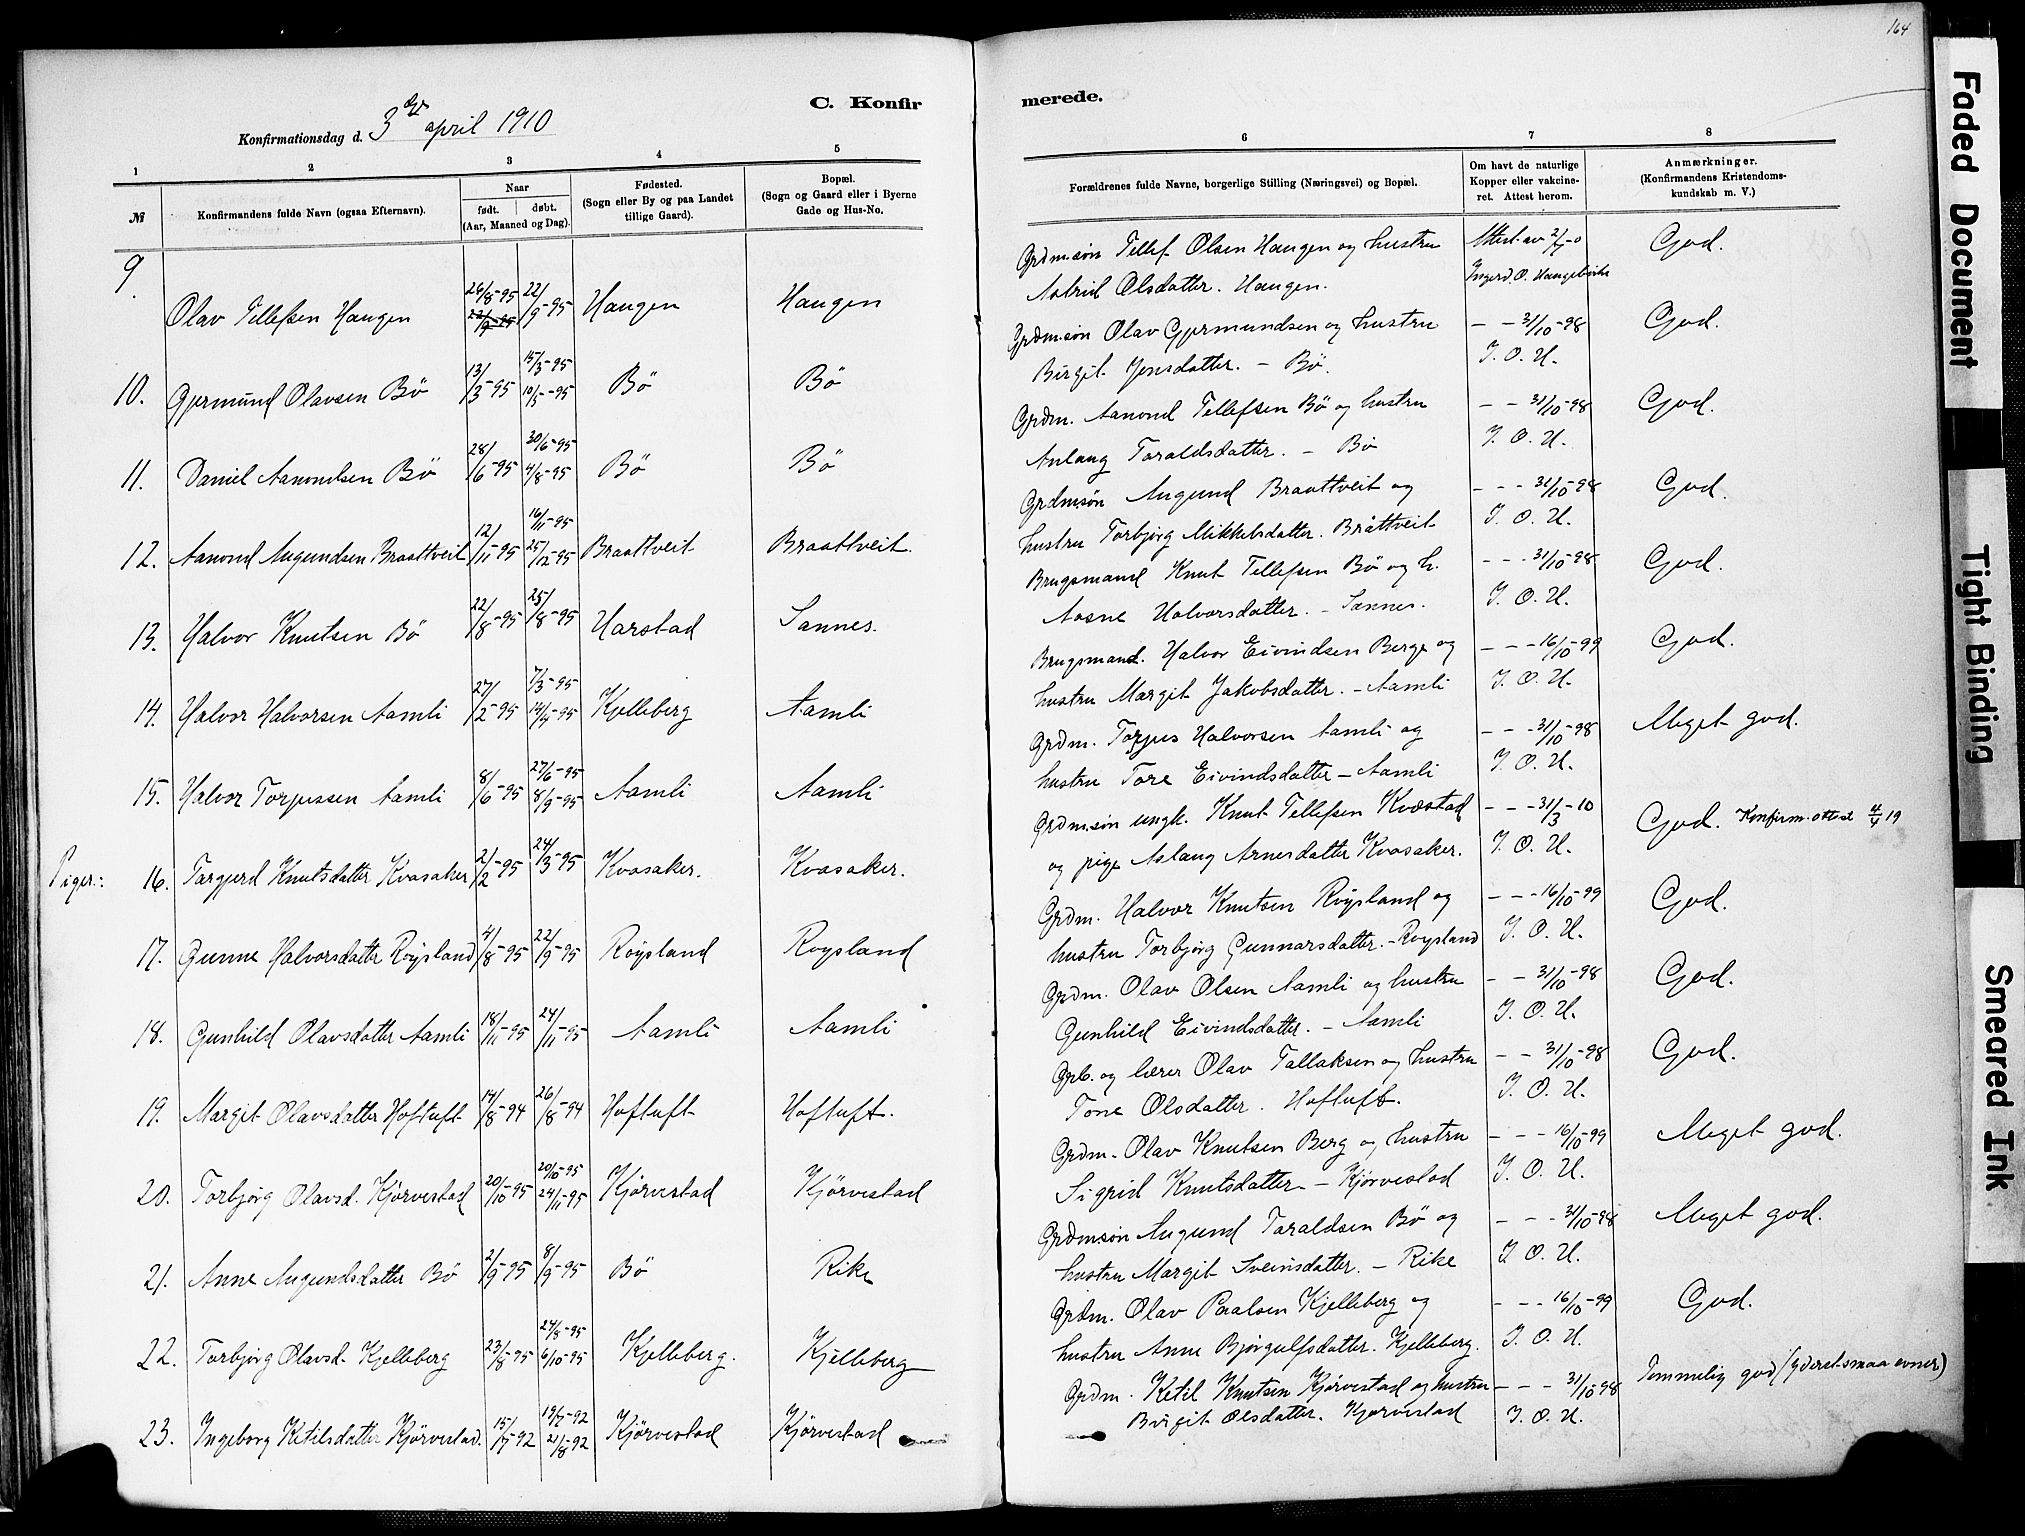 164
C. Konfirmerede.
Konfirmationsdag d. 3die april 1910
1
2
3
4
5
6
7
8
№
Konfirmandens fulde Navn (ogsaa Efternavn).
Naar
født. døbt.
(Aar, Maaned og Dag).
Fødested.
(Sogn eller By og paa Landet
tillige Gaard).
Bopæl.
(Sogn og Gaard eller i Byerne
Gade og Hus-No.
Forældrenes fulde Navne, borgerlige Stilling (Næringsvei) og Bopæl.
Om havt de naturlige
Kopper eller vakcine-
ret. Attest herom.
Anmærkninger.
(Konfirmandens Kristendoms-
kundskab m. V.)
9. Olav Tellefsen Haugen 24/8-95 22/9-95 Haugen Haugen
Grdmsøn Tellef Olsen Haugen og hustru Attest av God.
Astrid Olsdatter. Haugen. Ingerd O.
10. Gjermund Olavsen Bö 13/3-95 15/3-95 10/5-95 Bö Bö
Grdmsøn Olav Gjermundsen og hustru - - 31/10-98 God.
Birgit Jonsdatter. - Bö. I. O. H.
11. Daniel Aanondsen Bö 28/6-95 30/6-95 4/8-95 Bö Bö
Grdm. Aanond Tellefsen Bö og hustru - - 31/10-98 God.
Aslaug Taraldsdatter. - Bö I. O. H.
12. Aanond Augundsen Braattveit 12/11-95 16/11-95 25/12-95 Braattveit Braattveit.
Grdmsøn Augund Braattveit og - - - 31/10-98 God.
hustru Torbjørg Mikkelsdatter. Bråttveit I. O. H.
13. Halvor Knutsen Bö 22/8-95 25/8-95 Harstad Sannes.
Brugsmand Knut Tellefsen Bö og h. - - - 31/10-98 God.
Aasne Halvorsdatter. - Sannes. I. O. H.
14. Halvor Halvorsen Aamli 27/2-95 7/3-95 14/4-95 Kjelleberg Aamli
Brugsmand. Halvor Eivindsen Berge og - - - 16/10-99 God.
hustru Margit Jakobsdatter. - Aamli I. O. H.
15. Halvor Torjussen Aamli 8/6-95 27/6-95 8/9-95 Aamli Aamli
Grdm. Torjus Halvorsen Aamli og - - - 31/10-98 Meget god.
hustru Tore Eivindsdatter - Aamli I. O. H.
Piger: 16. Targjerd Knutsdatter Kvasaker 2/2-95 24/3-95 Kvasaker. Kvasaker.
Grdmsøn ungk. Knut Tellefsen Kvæstad - - - 31/3-10 God. Konfirm. attest 4/4 19
og pige Aslaug Arnesdatter Kvasaker. I. O. H.
17. Gunne Halvorsdatter Röysland 4/8-95 22/9-95 Röysland Röysland
Grdm. Halvor Knutsen Röysland og - - - 16/10-99 God.
hustru Torbjørg Gunnarsdatter. - Röysland I. O. H.
18. Gunhild Olavsdatter Aamli 18/11-95 24/11-95 Aamli Aamli
Grdm. Olav Olsen Aamli og hustru - - 31/10-98 God.
Gunhild Eivindsdatter. - Aamli I. O. H.
19. Margit Olavsdatter Hoftuft 14/8-94 26/8-94 Hoftuft Hoftuft.
og lærer Olav Tallaksen og hustru - - 31/10-98 God.
Tone Olsdatter. Hoftuft. I. O. H.
20. Torbjørg Olavsd. Kjörvestad 20/10-95 20/10-95 24/11-95 Kjörvestad Kjörvestad
Grdm. Olav Knutsen Berg og hustru - - - 16/10-99 Meget god.
Sigrid Knutsdatter - Kjörvestad I. O. H.
21. Anne Augundsdatter Bö 2/9-95 8/9-95 Bö Rike
Grdmsøn Augund Taraldsen Bö og - - - 31/10-98 Meget god.
hustru Margit Sveinsdatter. - Rike I. O. H.
22. Torbjørg Olavsd. Kjelleberg 23/8-95 24/8-95 6/10-95 Kjelleberg. Kjelleberg
Grdm. Olav Paalsen Kjelleberg og - - - 16/10-99 God.
hustru Anne Bjørgulfsdatter. Kjelleberg. I. O. H.
23. Ingeborg Ketilsdatter Kjörvestad. 15/7-92 19/7-92 21/8-92 Kjörvestad Kjörvestad
Grdm. Ketil Knutsen Kjörvestad og hustru - - - 31/10-98 Temmelig god (yderst smaa evner)
Birgit Olsdatter. Kjörvestad I. O. H.
Faded Document
Tight Binding
Smeared Ink